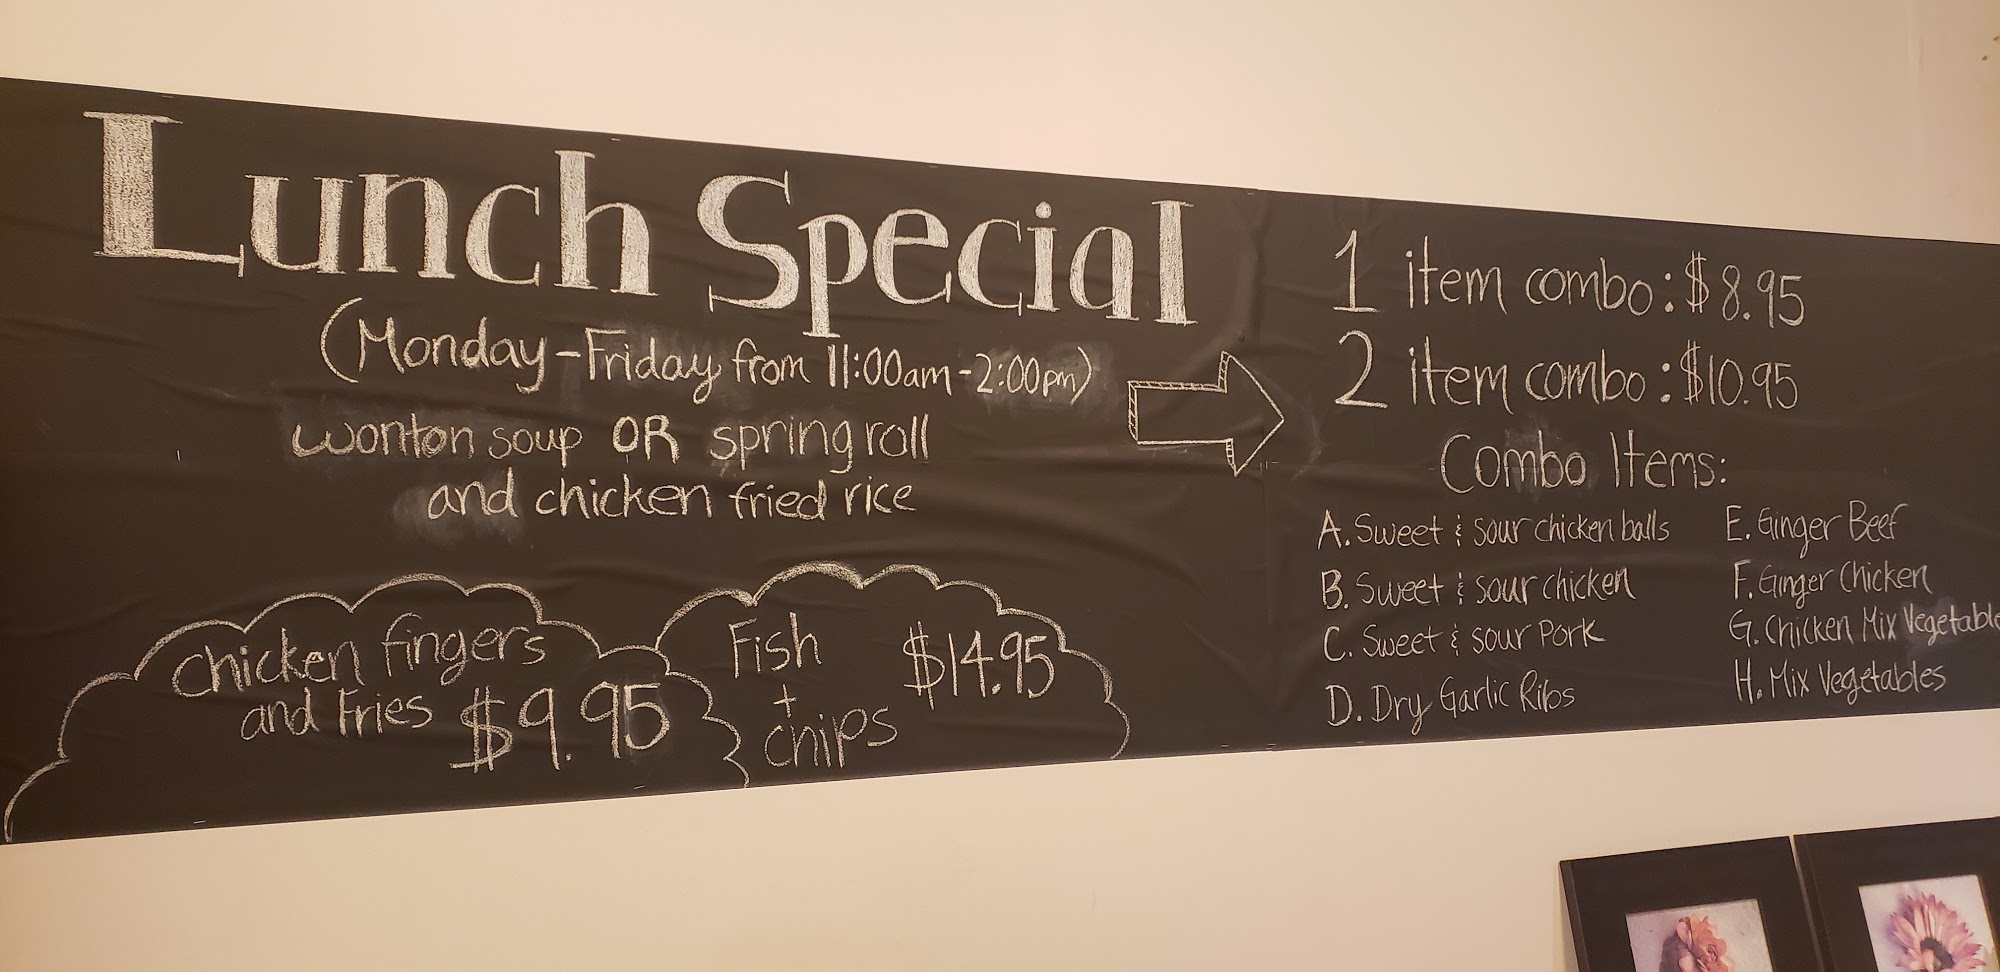 Lunch Special
(Monday-Friday from 11:00am-2:00pm)
wonton soup OR spring roll
and chicken fried rice
Chicken fingers
and Fries $9.95
Fish
+
chips
$14.95
1 item combo: $8.95
2 item combo: $10.95
Combo Items:
A. Sweet & sour chicken balls
B. Sweet & sour chicken
C. Sweet & sour Pork
D. Dry Garlic Ribs
E. Ginger Beef
F. Ginger Chicken
G. Chicken Mix Vegetable
H. Mix Vegetables